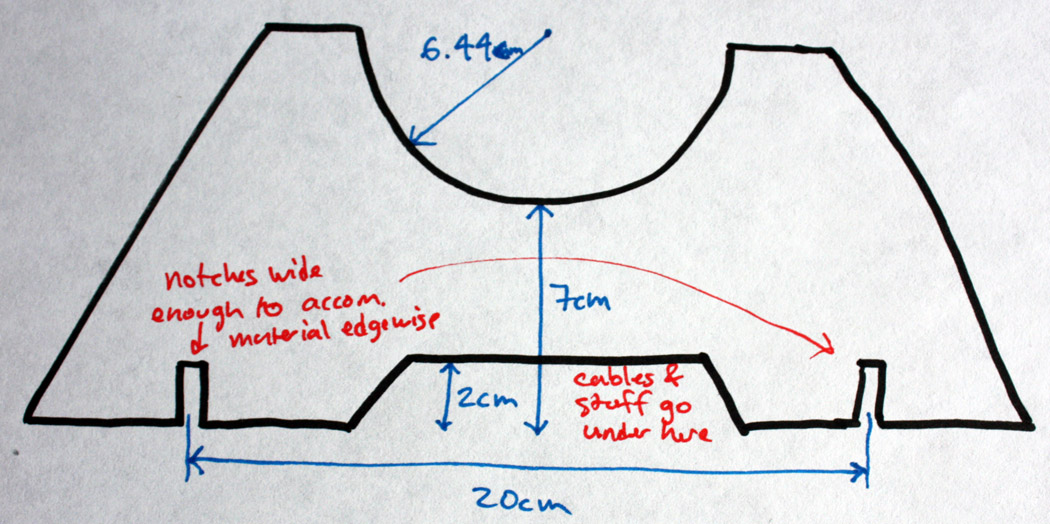 6.44cm
notches wide
enough to accom.
material edgewise
7cm
2cm
cables &
stuff go
under here
20cm